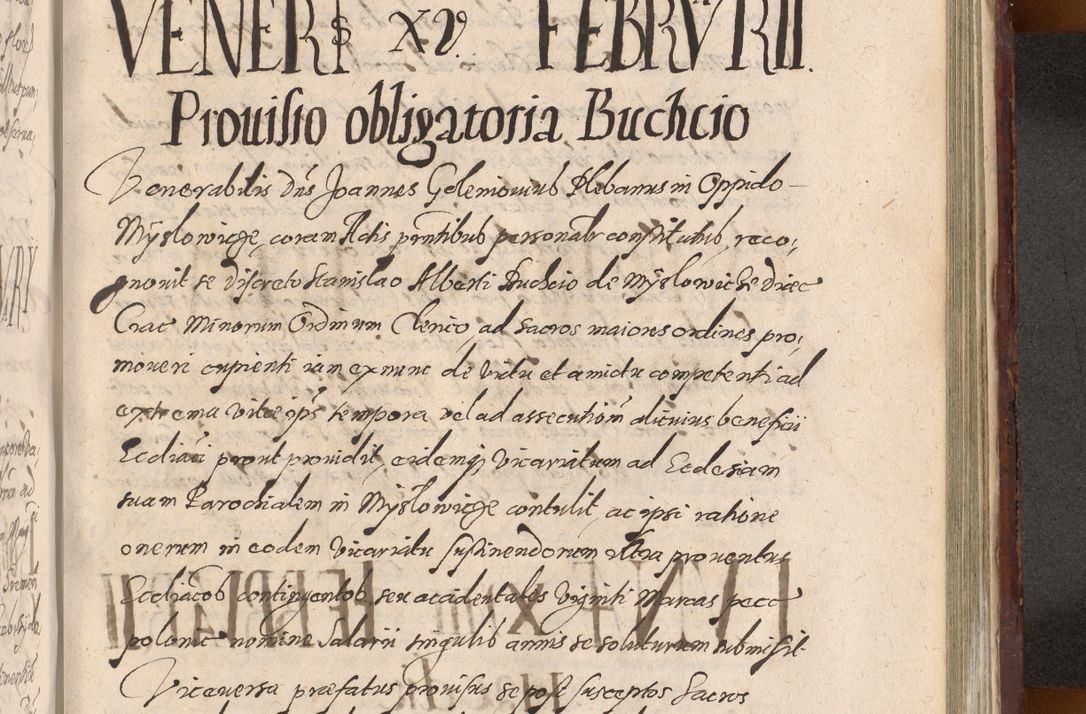 VENERIS XV. FEBRVARII.
Prouisio obligatoria Buchcio
Venerabilis Dns Joannes Geleniouius Plebanus in Oppido
Myslowicze, coram Actis pntibus personalr constitutus, reco,
gnouit se discreto Stanislao Alberti Buchcio de Myslowicze Dioec
Crac Minorum Ordinum Clerico, ad sacros maiores ordines pro,
moueri cupienti iam ex nunc de victu et amictu competenti ad
extrema vitae ips tempora vel ad assecutionem alicuius beneficii
Eccliaci prout prouidit, eidemq vicariatum ad Ecclesiam
suam Parochialem in Myslowicze contulit, ac ipsi ratione
onerum in eodem vicariatu sustinendorum vltra prouentus
Eccliacos contingentes seu accidentales viginti Marcas pecc
polonic nomine Salarii singulis annis se soluturum submisit
Viceversa praefatus prouisus se post susceptos sacros